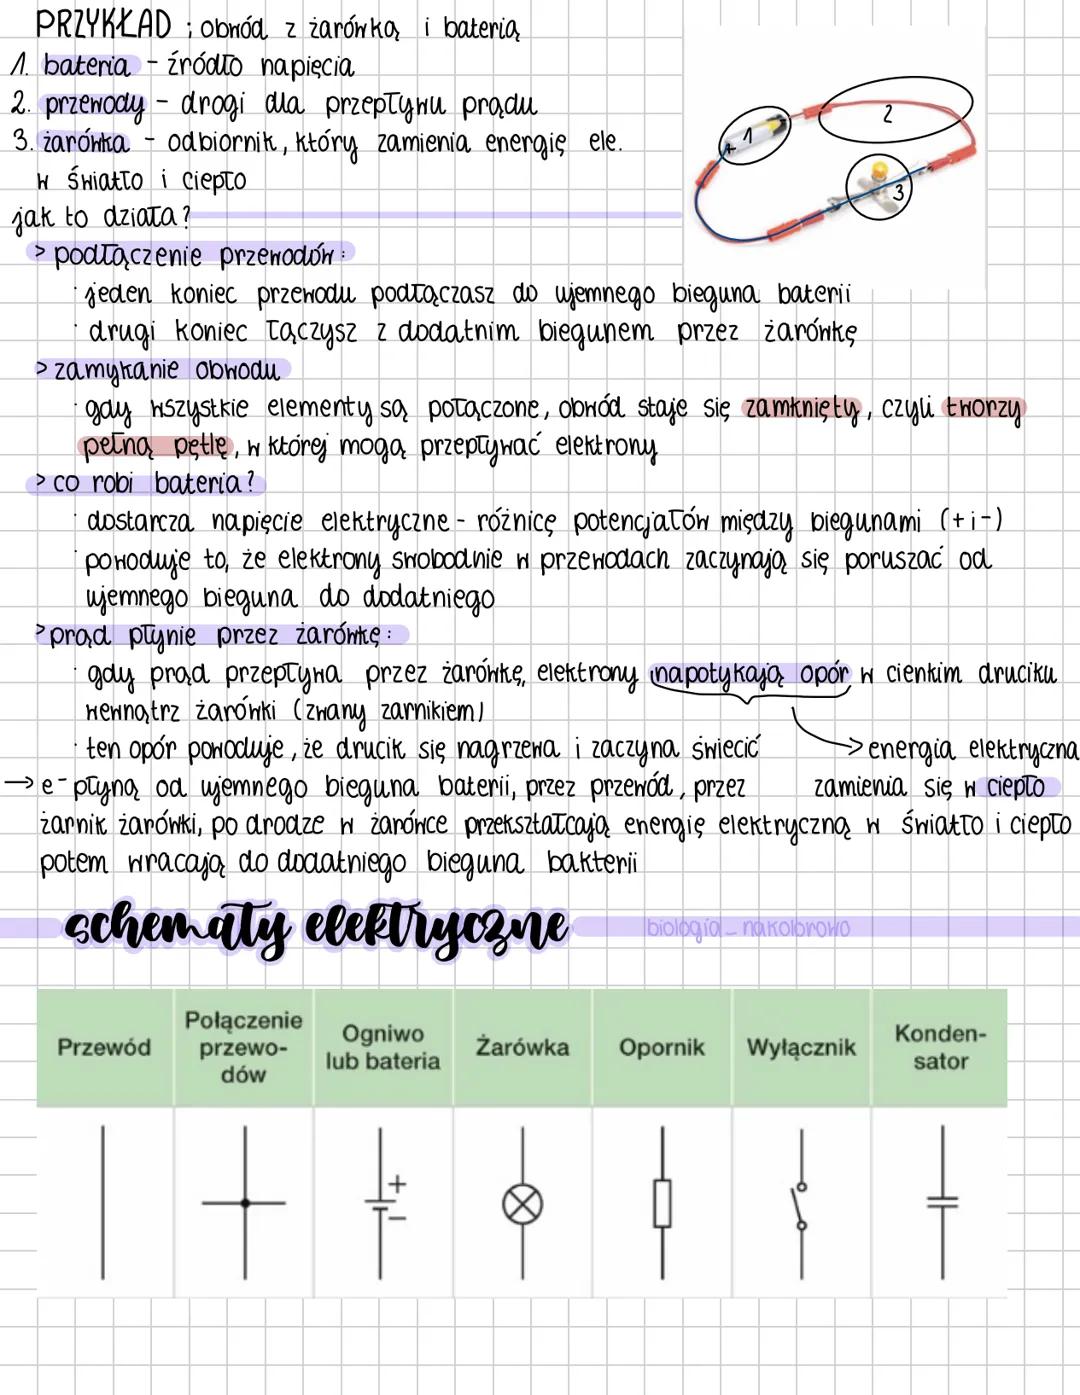 PRZYKŁAD ; obwód z żarówką i baterią
1. bateria - źródło napięcia
2. przewody - drogi dla przepływu prądu
3. żarówka - odbiornik, który zamienia energię ele.
w światło i ciepło
1
2
3
+
jak to działa?
> podłączenie przewodów:
· jeden koniec przewodu podłączasz do ujemnego bieguna baterii
· drugi koniec łączysz z dodatnim biegunem przez żarówkę
> zamykanie obwodu
· gdy wszystkie elementy są połączone, obwód staje się zamknięty, czyli tworzy
pełną pętlę, w której mogą przepływać elektrony
> co robi bateria?
· dostarcza napięcie elektryczne - różnicę potencjałów między biegunami (+ i -)
· powoduje to, że elektrony swobodnie w przewodach zaczynają się poruszać od
ujemnego bieguna do dodatniego
> prąd płynie przez żarówkę:
· gdy prąd przepływa przez żarówkę, elektrony napotykają opór w cienkim druciku
wewnątrz żarówki (zwany żarnikiem)
· ten opór powoduje, że drucik się nagrzewa i zaczyna świecić
→ energia elektryczna
zamienia się w ciepło
→ e- płyną od ujemnego bieguna baterii, przez przewód, przez
żarnik żarówki, po drodze w żarówce przekształcają energię elektryczną w światło i ciepło
potem wracają do dodatniego bieguna bakterii
schematy elektryczne
biologia_nakolorowo
Przewód
Połączenie
przewo-
dów
Ogniwo
lub bateria
Żarówka
Opornik
Wyłącznik
Konden-
sator
+
−